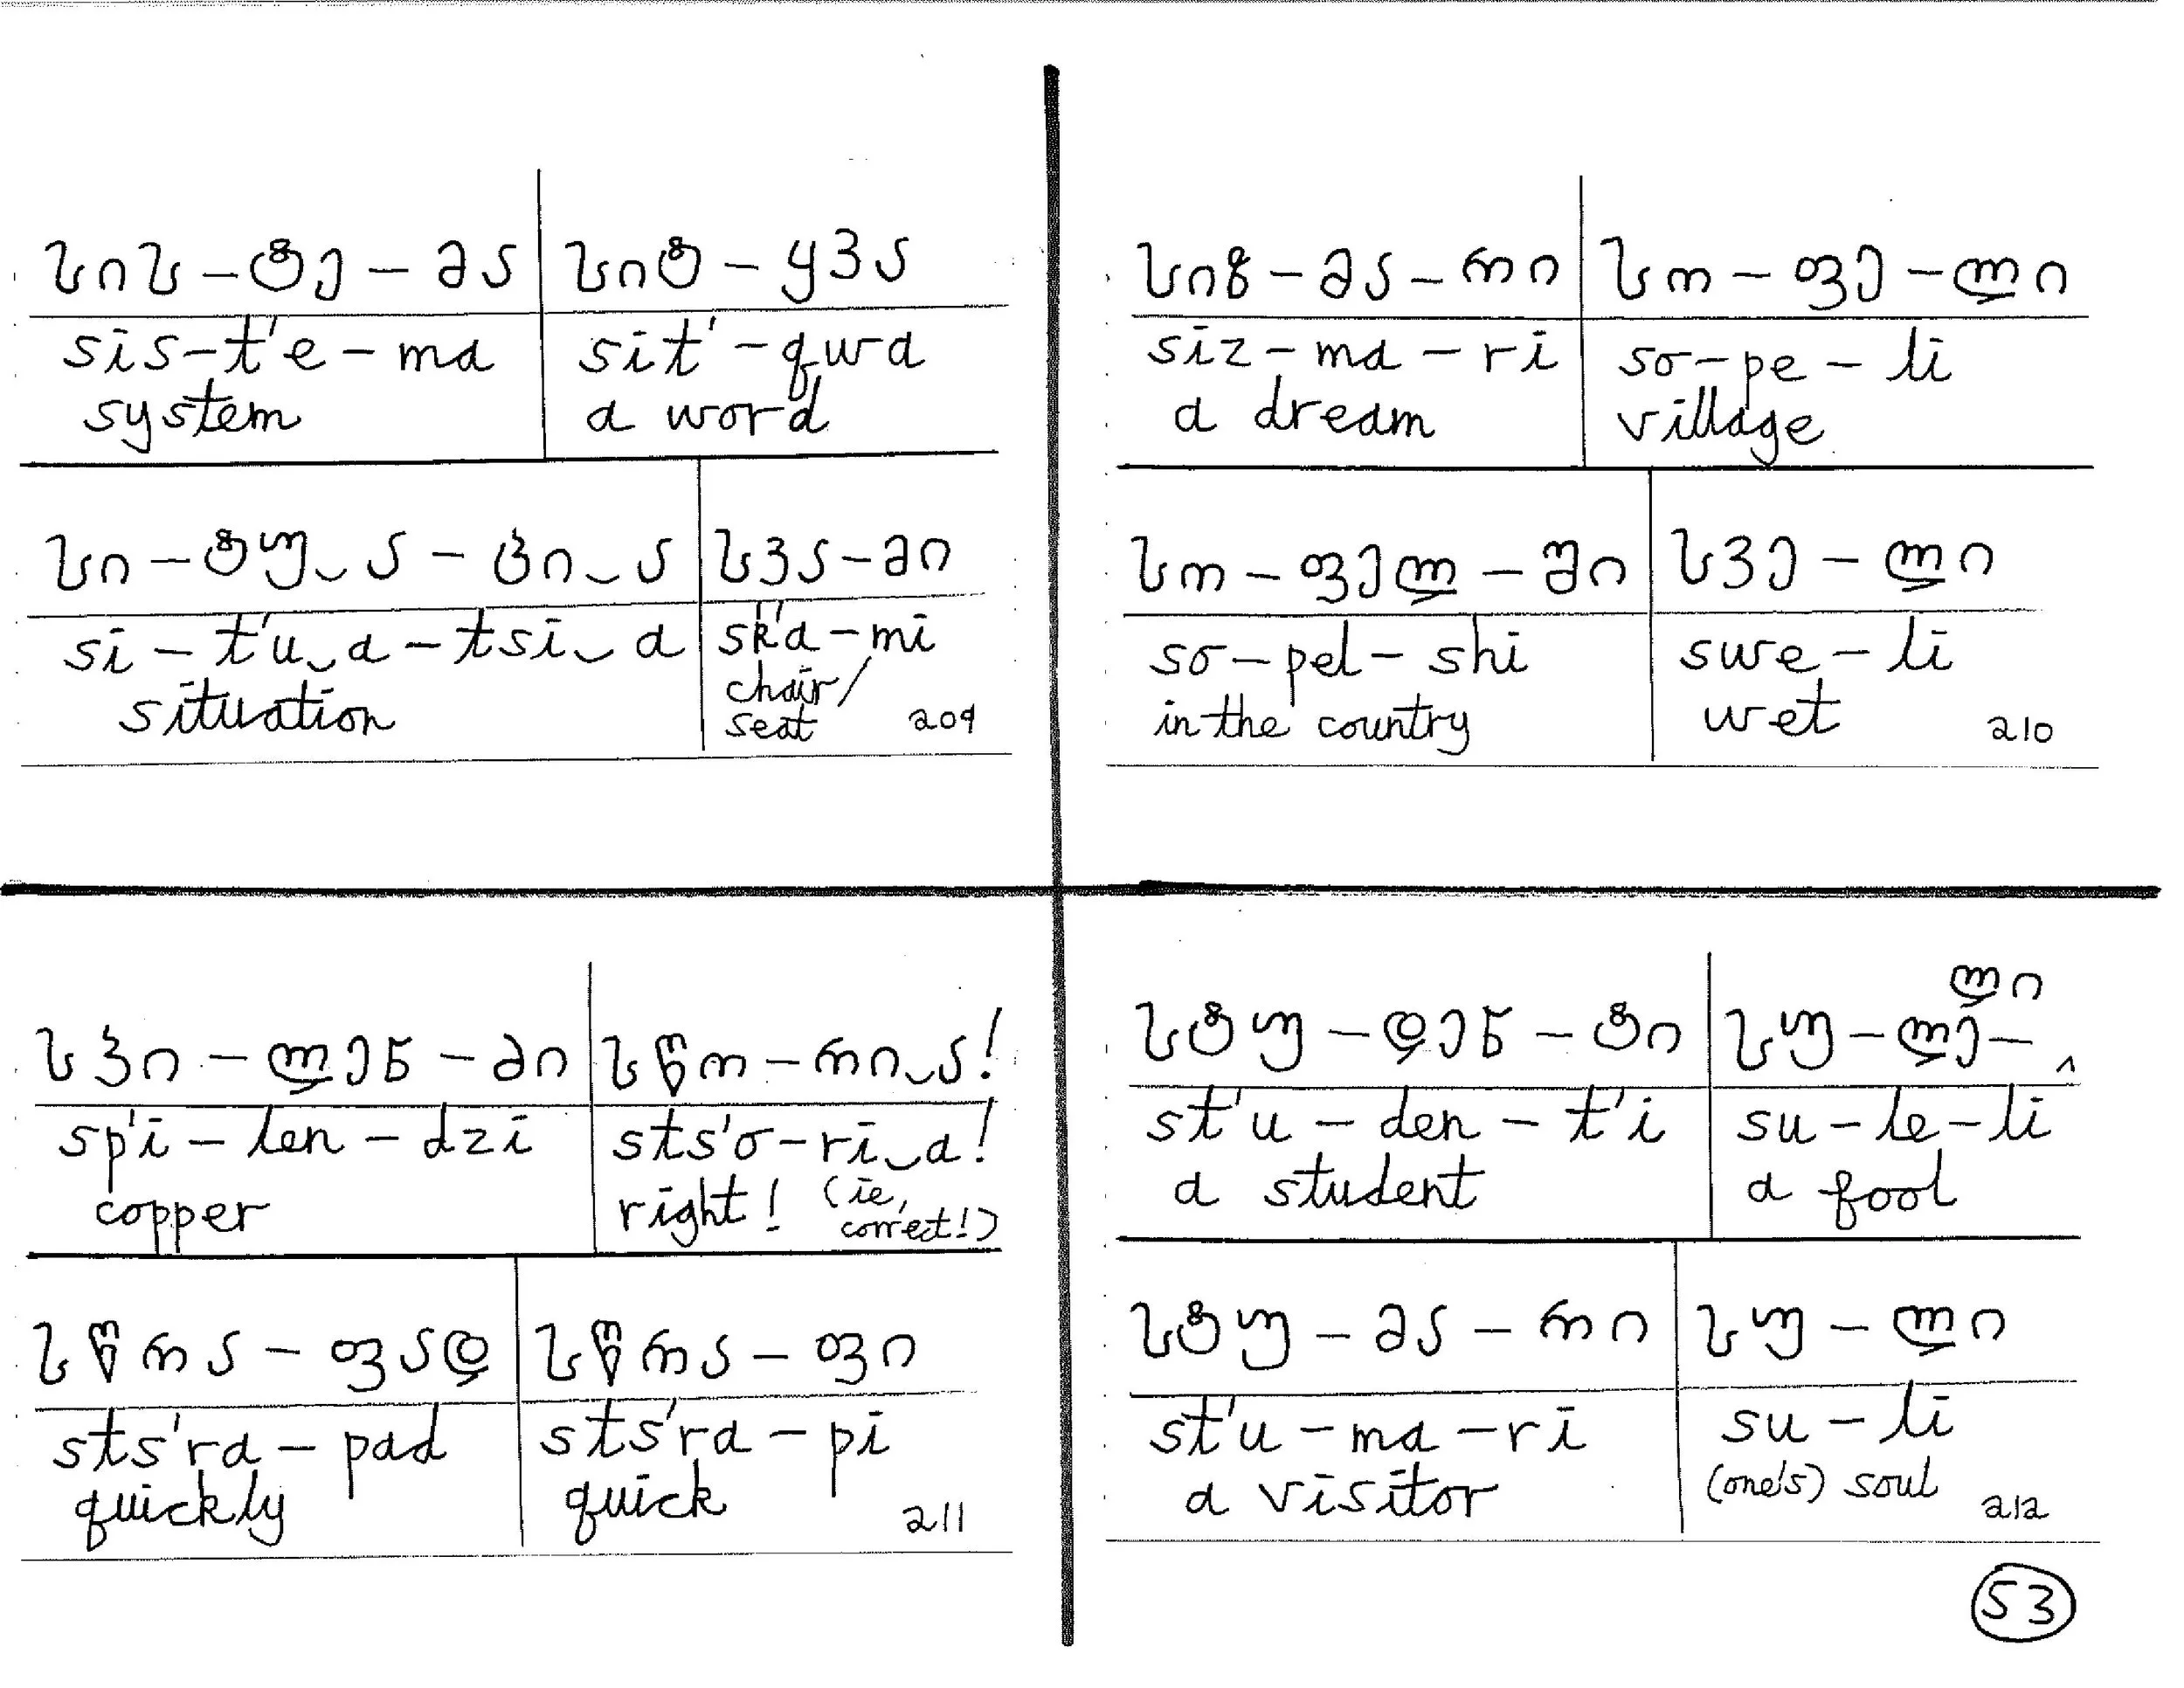 სის – ტე – მა
sis – t'e – ma
system
სიტ – ყვა
sit' – qwa
a word
სი – ტუ‿ა – ცი‿ა
si – t'u‿a – tsi‿a
situation
სკა – მი
sk'a – mi
chair/
seat
209
სიზ – მა – რი
siz – ma – ri
a dream
სო – ფე – ლი
so – pe – li
village
სო – ფელ – ში
so – pel – shi
in the country
სვე – ლი
swe – li
wet
210
სპი – ლენ – ძი
sp'i – len – dzi
copper
სწო – რი‿ა!
sts'o – ri‿a!
right! (ie,
correct!)
სწრა – ფად
sts'ra – pad
quickly
სწრა – ფი
sts'ra – pi
quick
211
სტუ – დენ – ტი
st'u – den – t'i
a student
სუ – ლე – ლი
su – le – li
a fool
სტუ – მა – რი
st'u – ma – ri
a visitor
სუ – ლი
su – li
(one's) soul
212
53